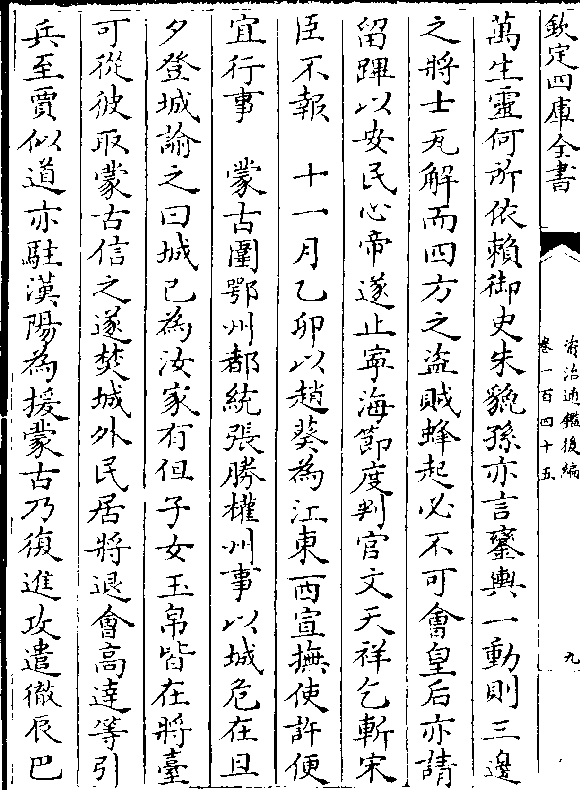 欽定四庫全書
資治通鑑後編
卷一百四十五
九
萬生靈何所依賴御史朱貔孫亦言鑾輿一動則三邊
之將士瓦解而四方之盜賊蜂起必不可會皇后亦請
留蹕以安民心帝遂止寧海節度判官文天祥乞斬宋
臣不報　十一月乙卯以趙葵為江東西宣撫使許便
宜行事　蒙古圍鄂州都統張勝權州事以城危在旦
夕登城諭之曰城已為汝家有但子女玉帛皆在將臺
可從彼取蒙古信之遂焚城外民居將退會高達等引
兵至賈似道亦駐漢陽為援蒙古乃復進攻遣徹辰巴